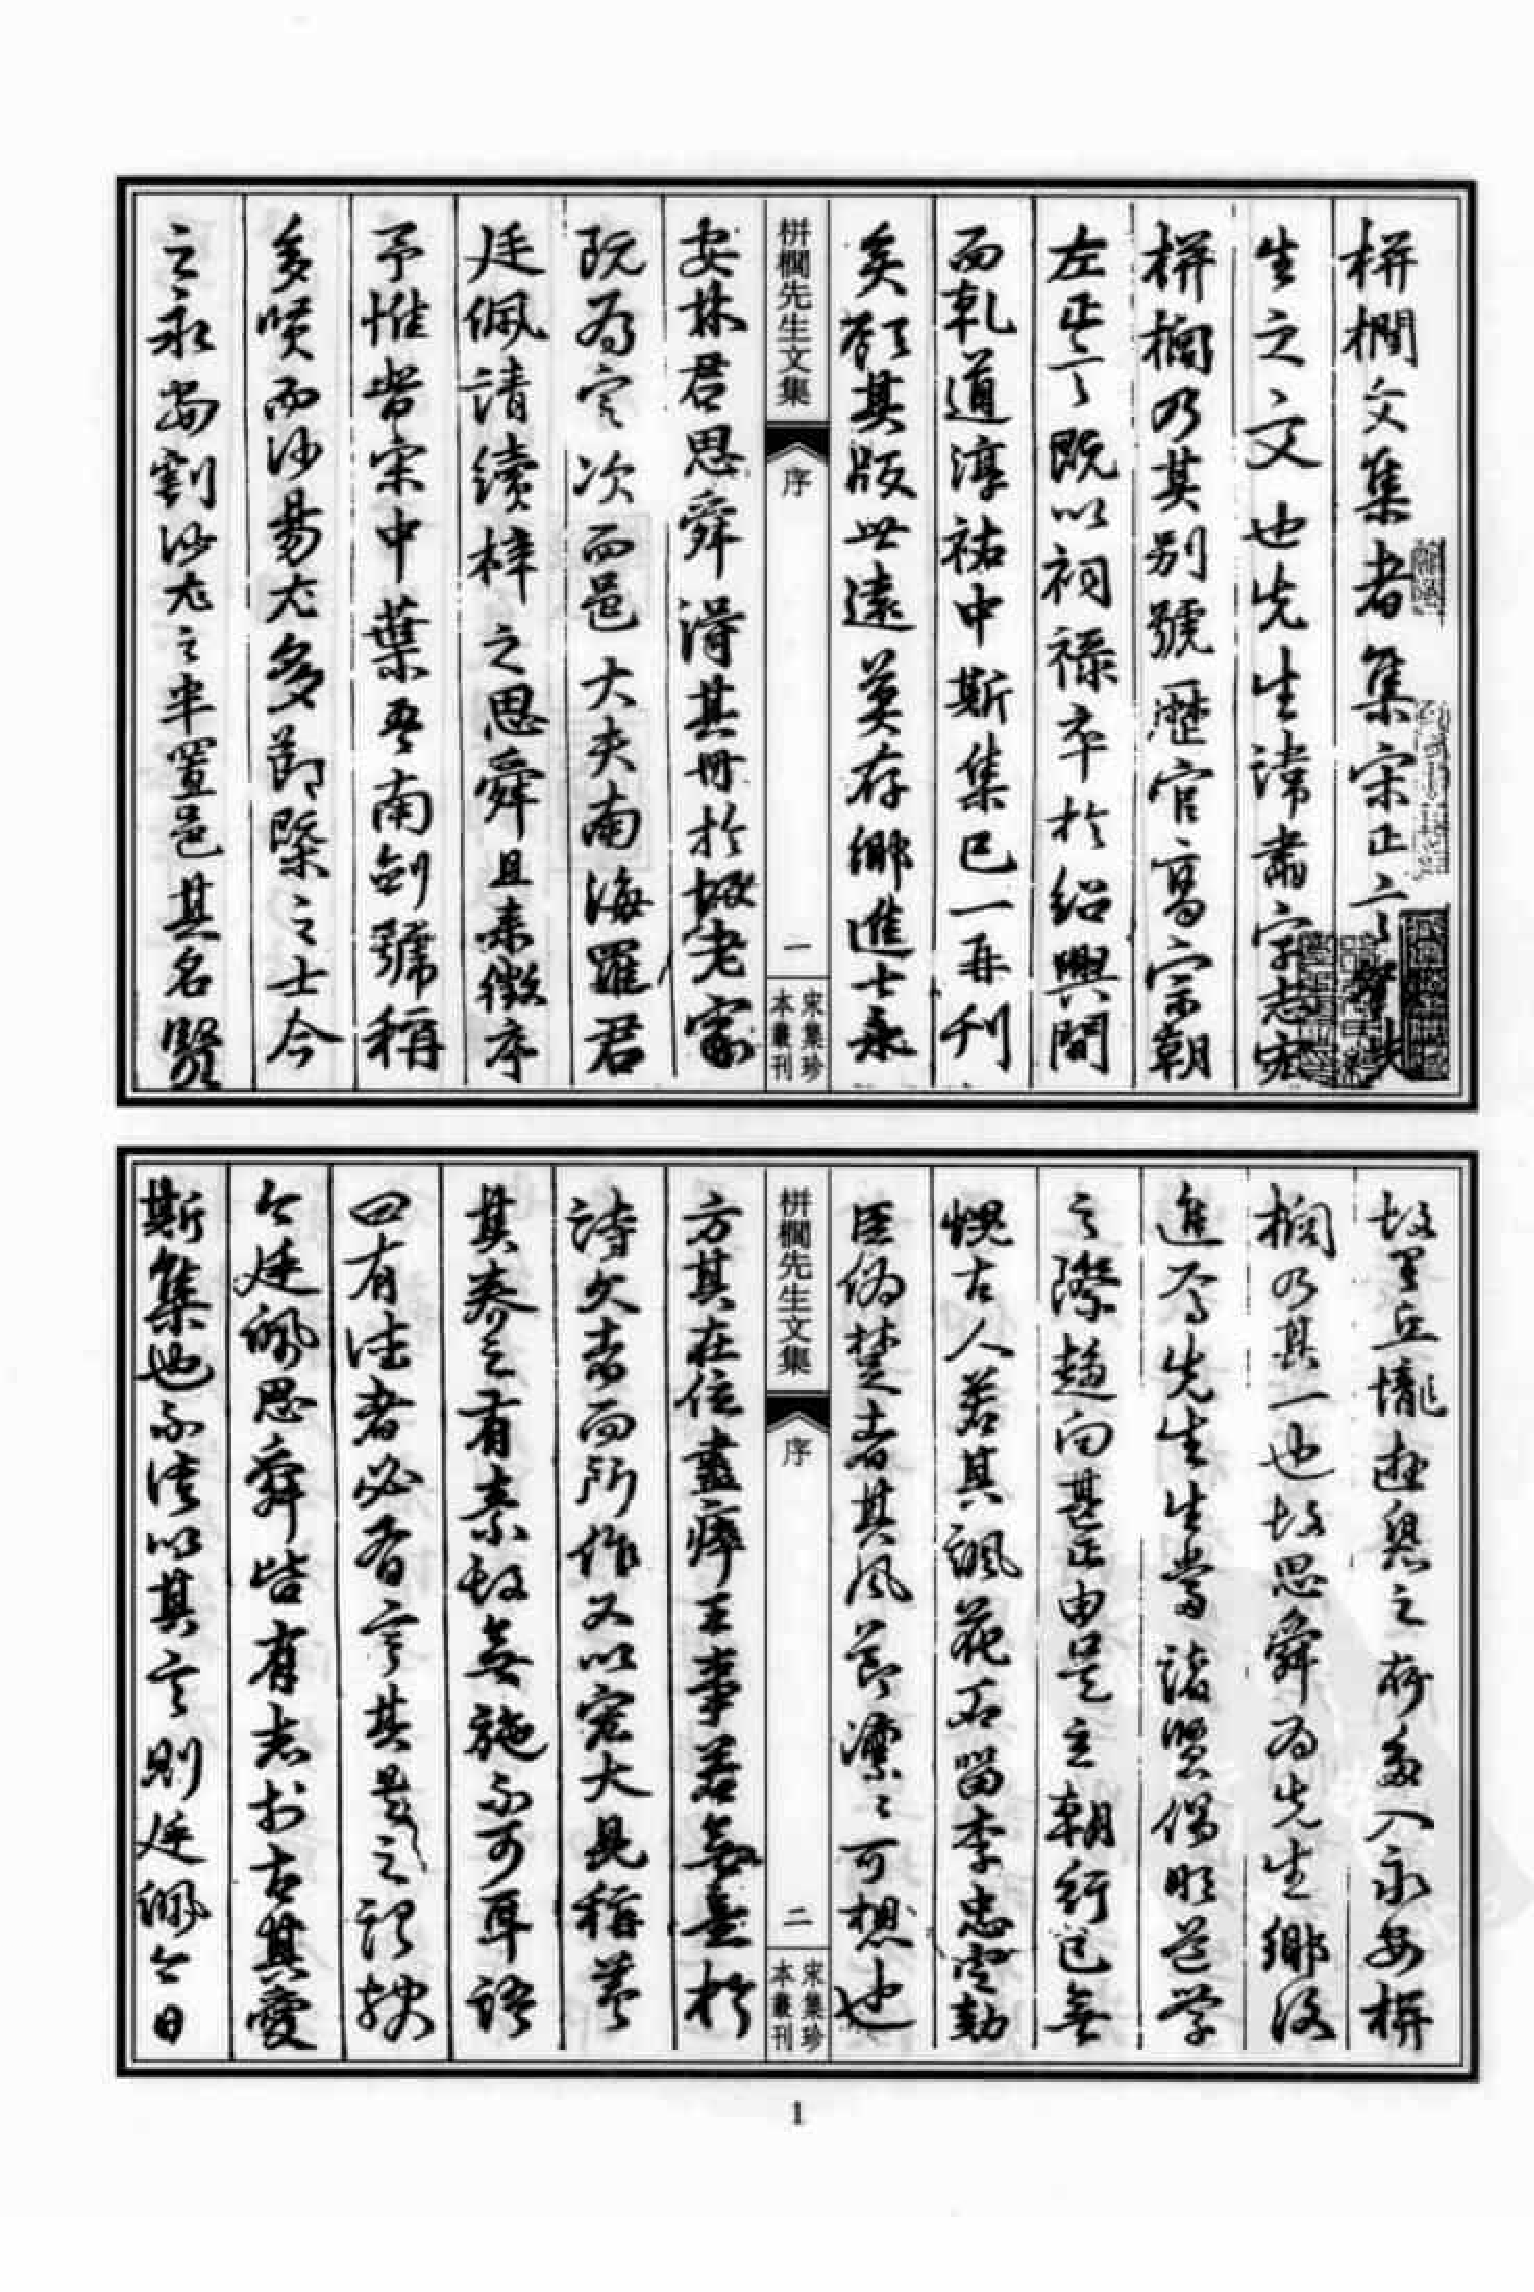 栟櫚文集者集宋正言鄧先
生之文也先生諱肅字志宏
栟櫚乃其別號歷官高宗朝
左正言既以祠祿卒於紹興間
而乾道淳祐中斯集已一再刊
矣顧其版世遠莫存鄉進士永
栟櫚先生文集
序
一
宋集珍本叢刊
安林君思舜得其冊於故老家
既為定次而邑大夫南海羅君
廷佩請續梓之思舜且來徵序
予惟昔宋中葉吾南劍號稱
多賢而沙易尤多節槩之士今
之永安割沙尤之半置邑其名賢
故里丘壠遊息之所多入永安栟
櫚乃其一也故思舜為先生鄉後
進焉先生生當諸賢倡明道學
之際趨向甚正由是立朝行己無
愧古人若其諷花石留李忠定劾
臣偽楚者其風節凜凜可想也
栟櫚先生文集
序
二
宋集珍本叢刊
方其在位盡瘁王事若無意於
詩文者而所作又以宏大見稱蓋
其養之有素故無施不可耳語
曰有德者必有言其是之謂歟
今廷佩思舜皆有志於古其愛
斯集也不徒以其言則廷佩今日